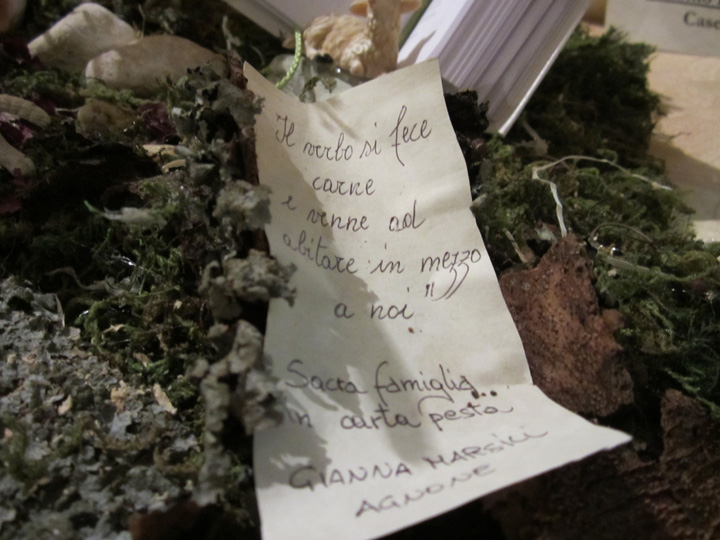 Il verbo si fece
carne
e venne ad
abitare in mezzo
a noi "
Sacra famiglia...
in carta pesta
GIANNA MARSILI
AGNONE